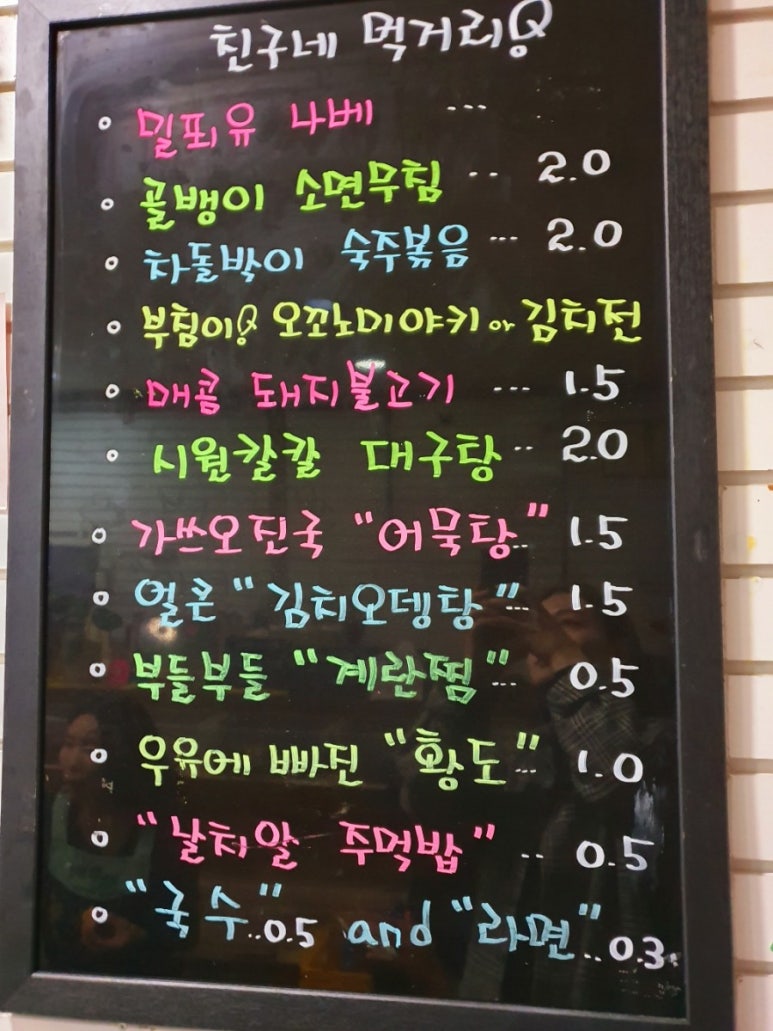 친구네 먹거리
밀푀유 나베 ...
골뱅이 소면무침 .. 2.0
차돌박이 숙주볶음 ... 2.0
부침이 오꼬노미야키 or 김치전
매콤 돼지불고기 ... 1.5
시원칼칼 대구탕 .. 2.0
가쓰오진국 "어묵탕".. 1.5
얼큰 "김치오뎅탕"... 1.5
부들부들 "계란찜"... 0.5
우유에 빠진 "황도"... 1.0
"날치알 주먹밥" .. 0.5
"국수"..0.5 and "라면"..0.3